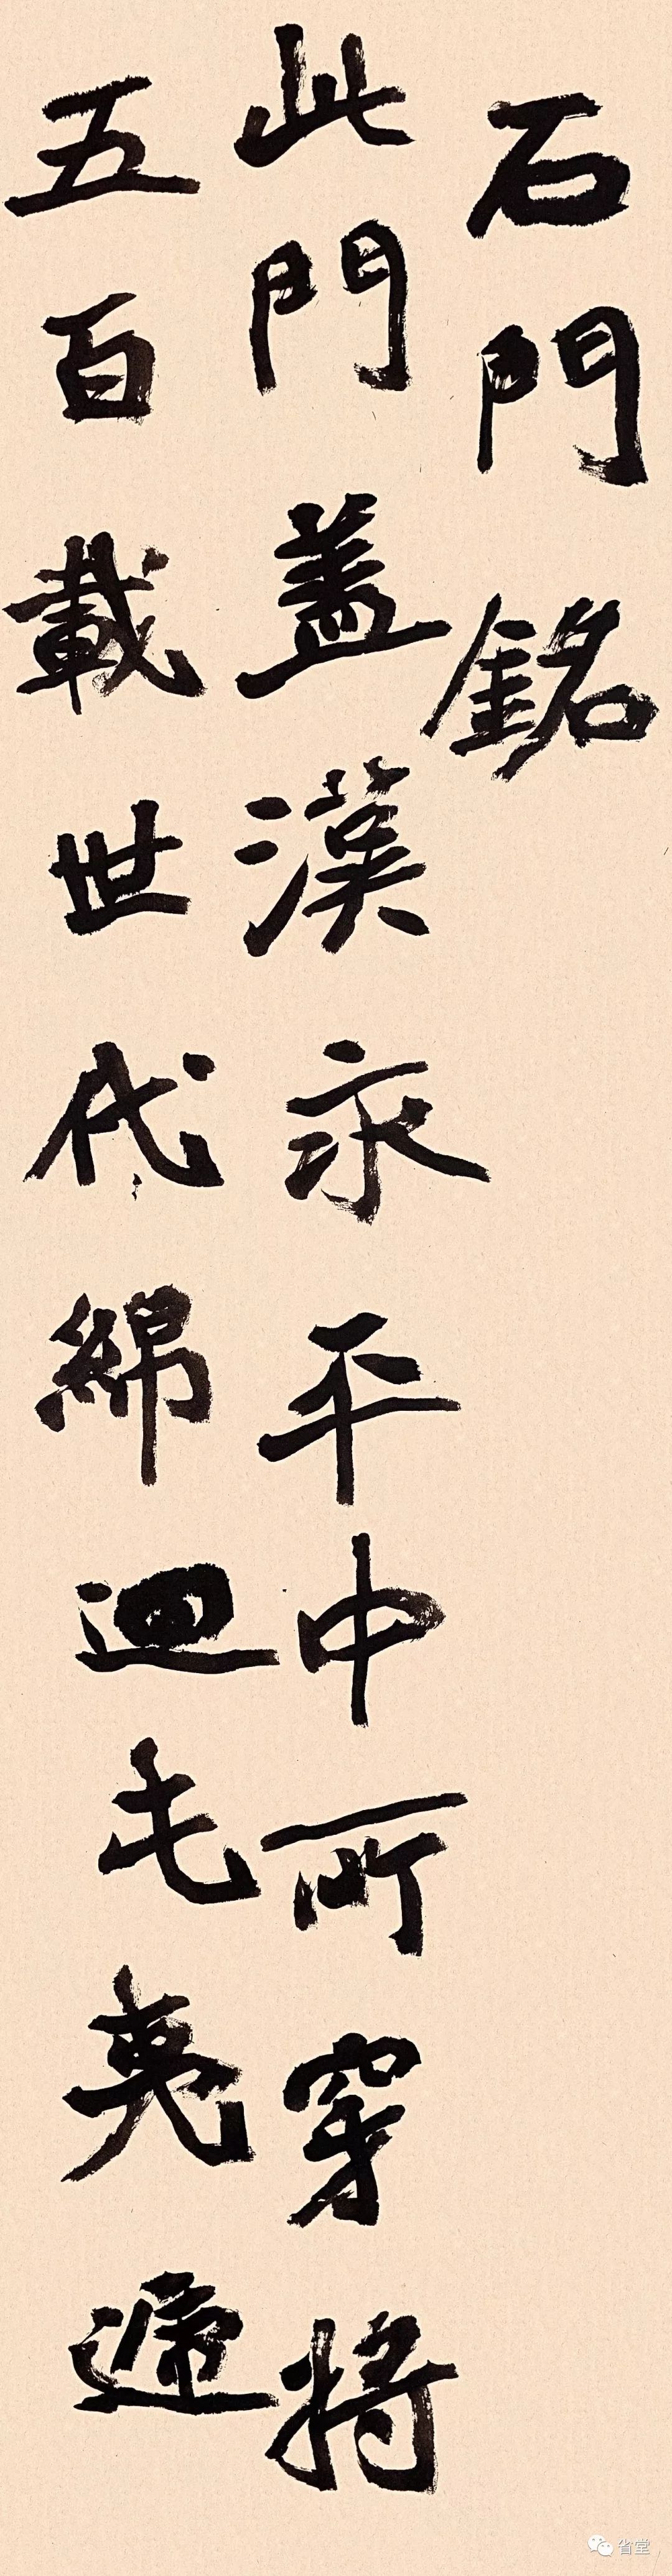 石門銘
此門蓋漢永平中所穿將
五百載世代綿迴屯夷遞
省堂